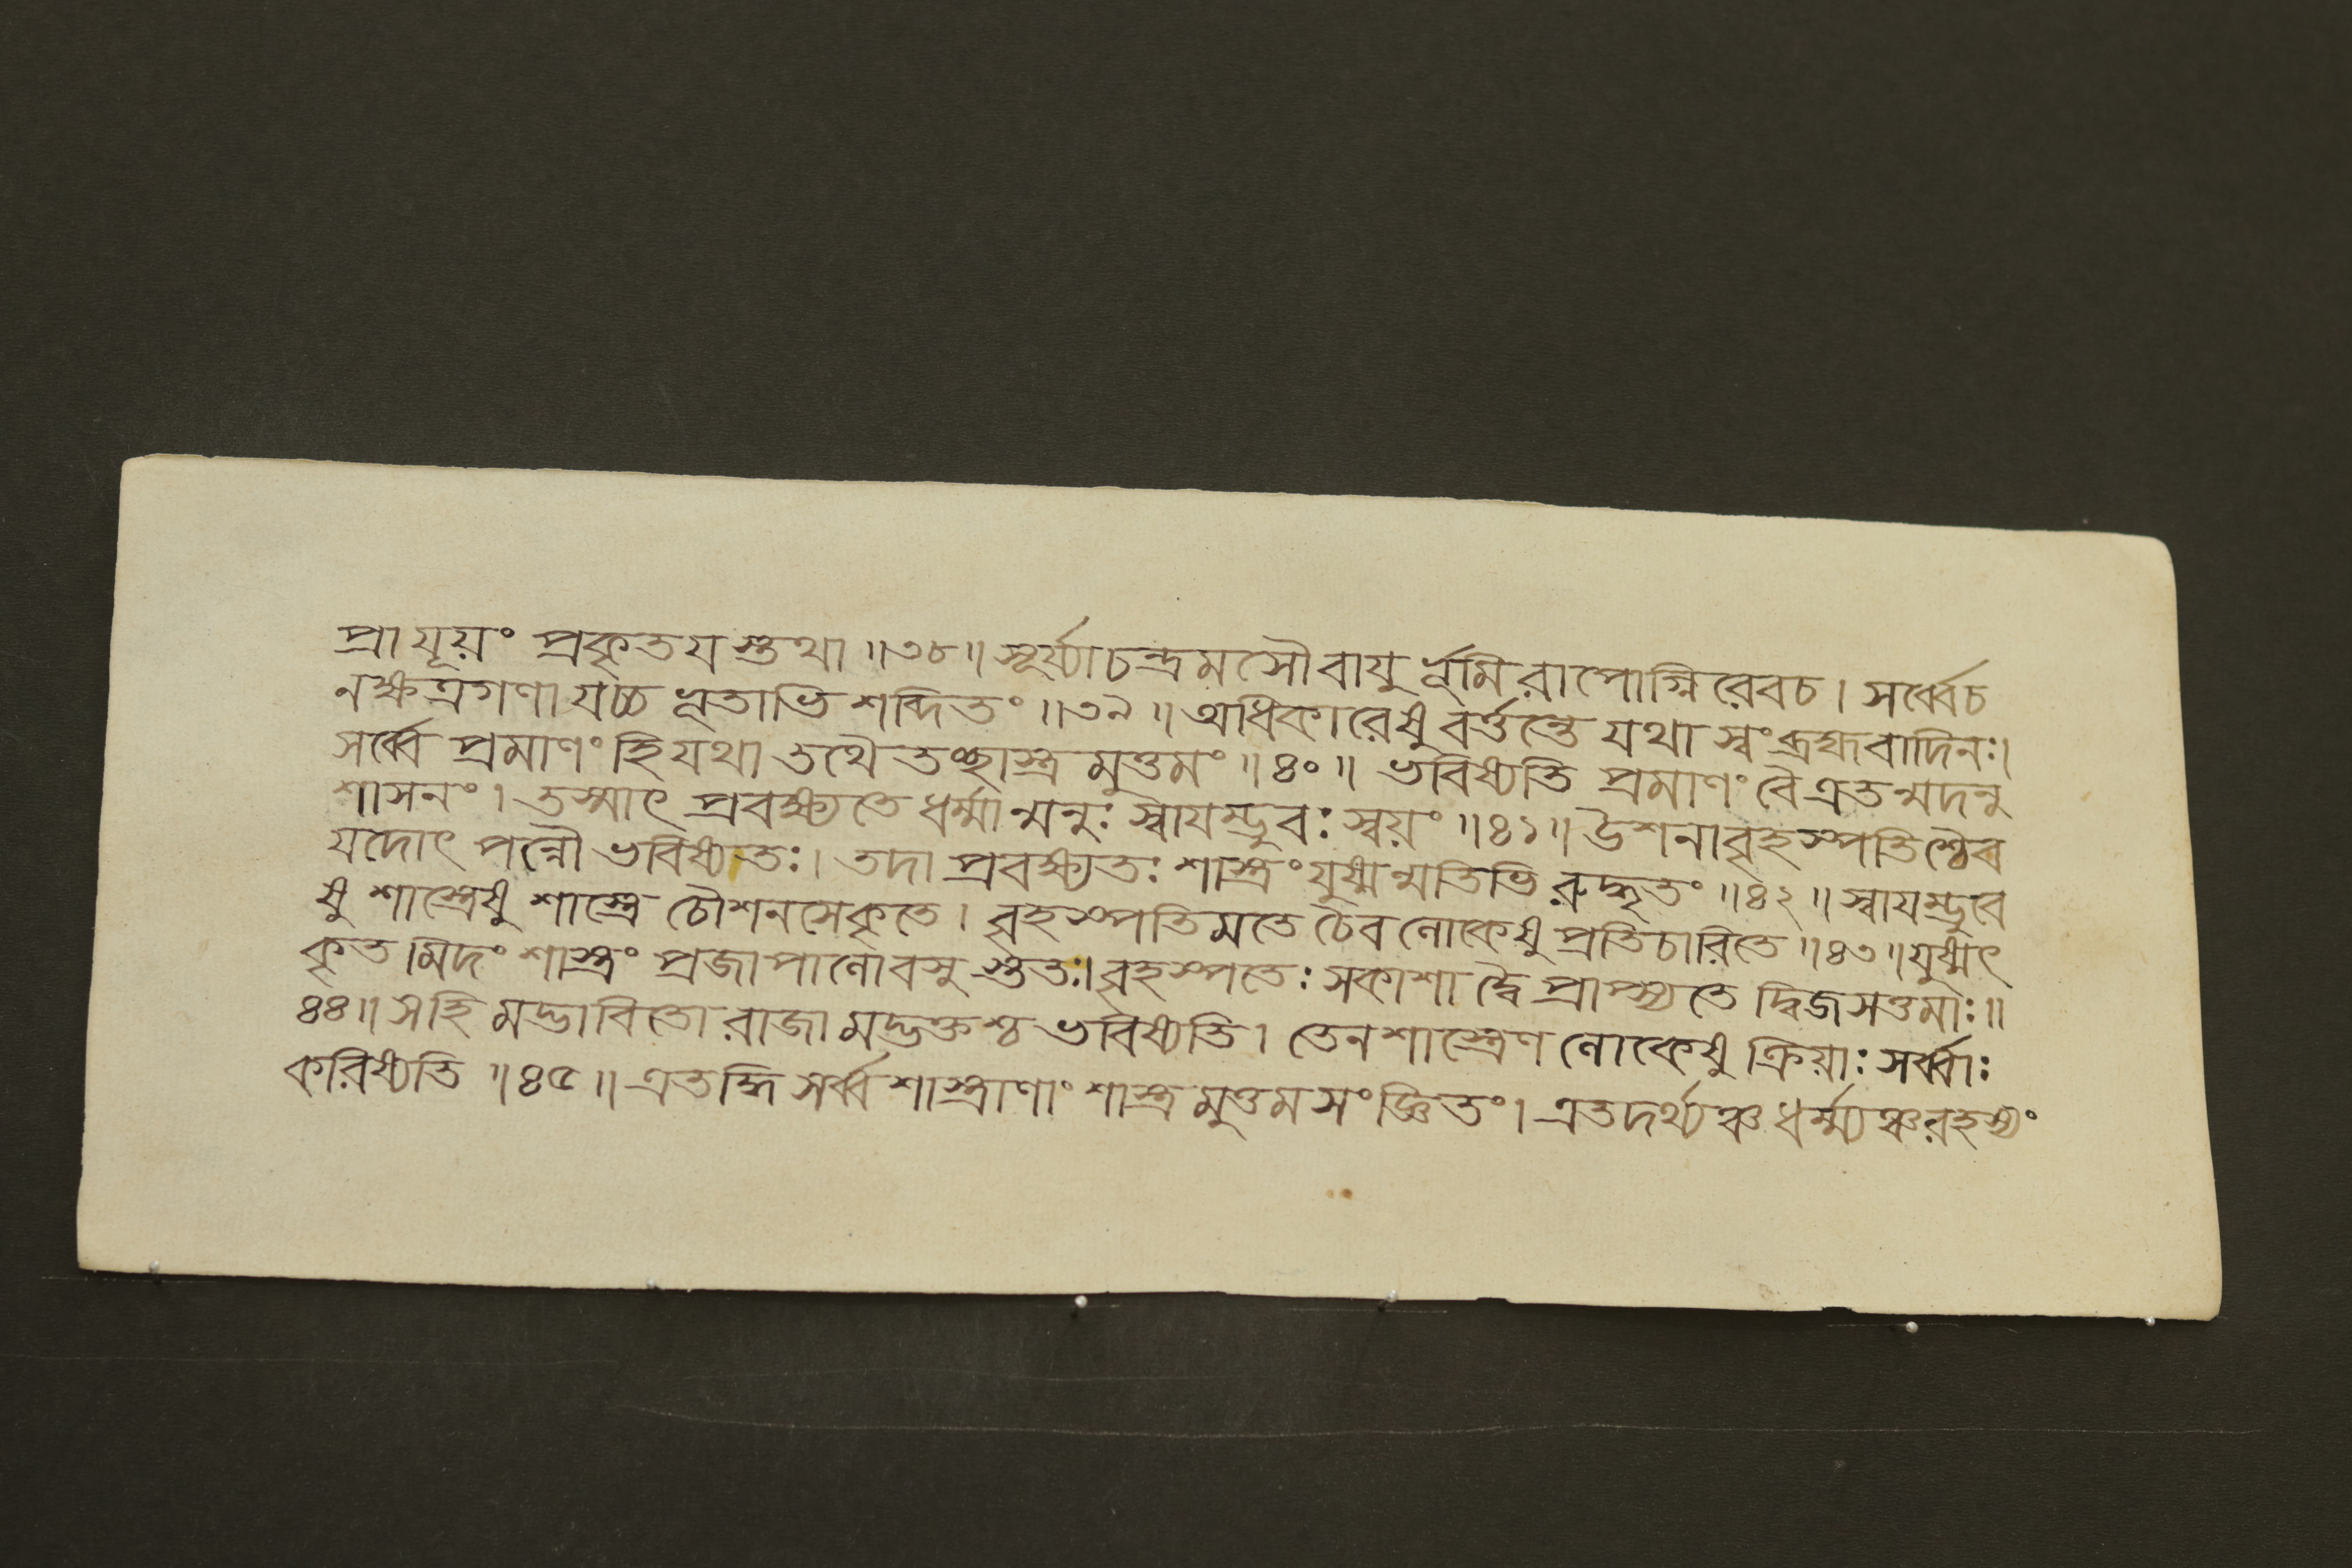 প্রা যূয়ং প্রকৃতয স্তথা ॥৩৮॥ সূর্য্যাচন্দ্রমসৌ বায়ু র্ভূমি রাপোগ্নি রেবচ। সর্ব্বেচ
নক্ষত্রগণা যচ্চ ভূতাভি শব্দিতং ॥৩৯॥ অধিকারেষু বর্ত্তন্তে যথা স্বং ব্রহ্মবাদিনঃ।
সর্ব্বে প্রমাণং হি যথা তথৈ তচ্ছাস্ত্র মুত্তমং ॥৪০॥ ভবিষ্যতি প্রমাণং বৈ এতন্মদনু
শাসনং। তস্মাৎ প্রবক্ষ্যতে ধর্ম্মান্মনুঃ স্বাযম্ভুবঃ স্বয়ং ॥৪১॥ উশনা বৃহস্পতি শ্চৈব
যদোৎ পন্নৌ ভবিষ্যতঃ। তদা প্রবক্ষ্যতঃ শাস্ত্রং যুষ্মন্মতিভি রুদ্ধৃতং ॥৪২॥ স্বাযম্ভুবে
ষু শাস্ত্রেষু শাস্ত্রে চৌশনসেকৃতে। বৃহস্পতিমতে চৈব লোকেষু প্রতিচারিতে ॥৪৩॥ যুষ্মৎ
কৃত মিদং শাস্ত্রং প্রজাপালোবসু স্ততঃ। বৃহস্পতেঃ সকাশা দ্বৈ প্রাপ্স্যতে দ্বিজসত্তমাঃ॥
৪৪॥ সহি মদ্ভাবিতো রাজা মদ্ভক্তশ্চ ভবিষ্যতি। তেন শাস্ত্রেণ লোকেষু ক্রিয়াঃ সর্ব্বাঃ
করিষ্যতি ॥৪৫॥ এতদ্ধি সর্ব্ব শাস্ত্রাণাং শাস্ত্র মুত্তম সংজ্ঞিতং। এতদর্থ্যঞ্চ ধর্ম্ম্যঞ্চ রহস্যং